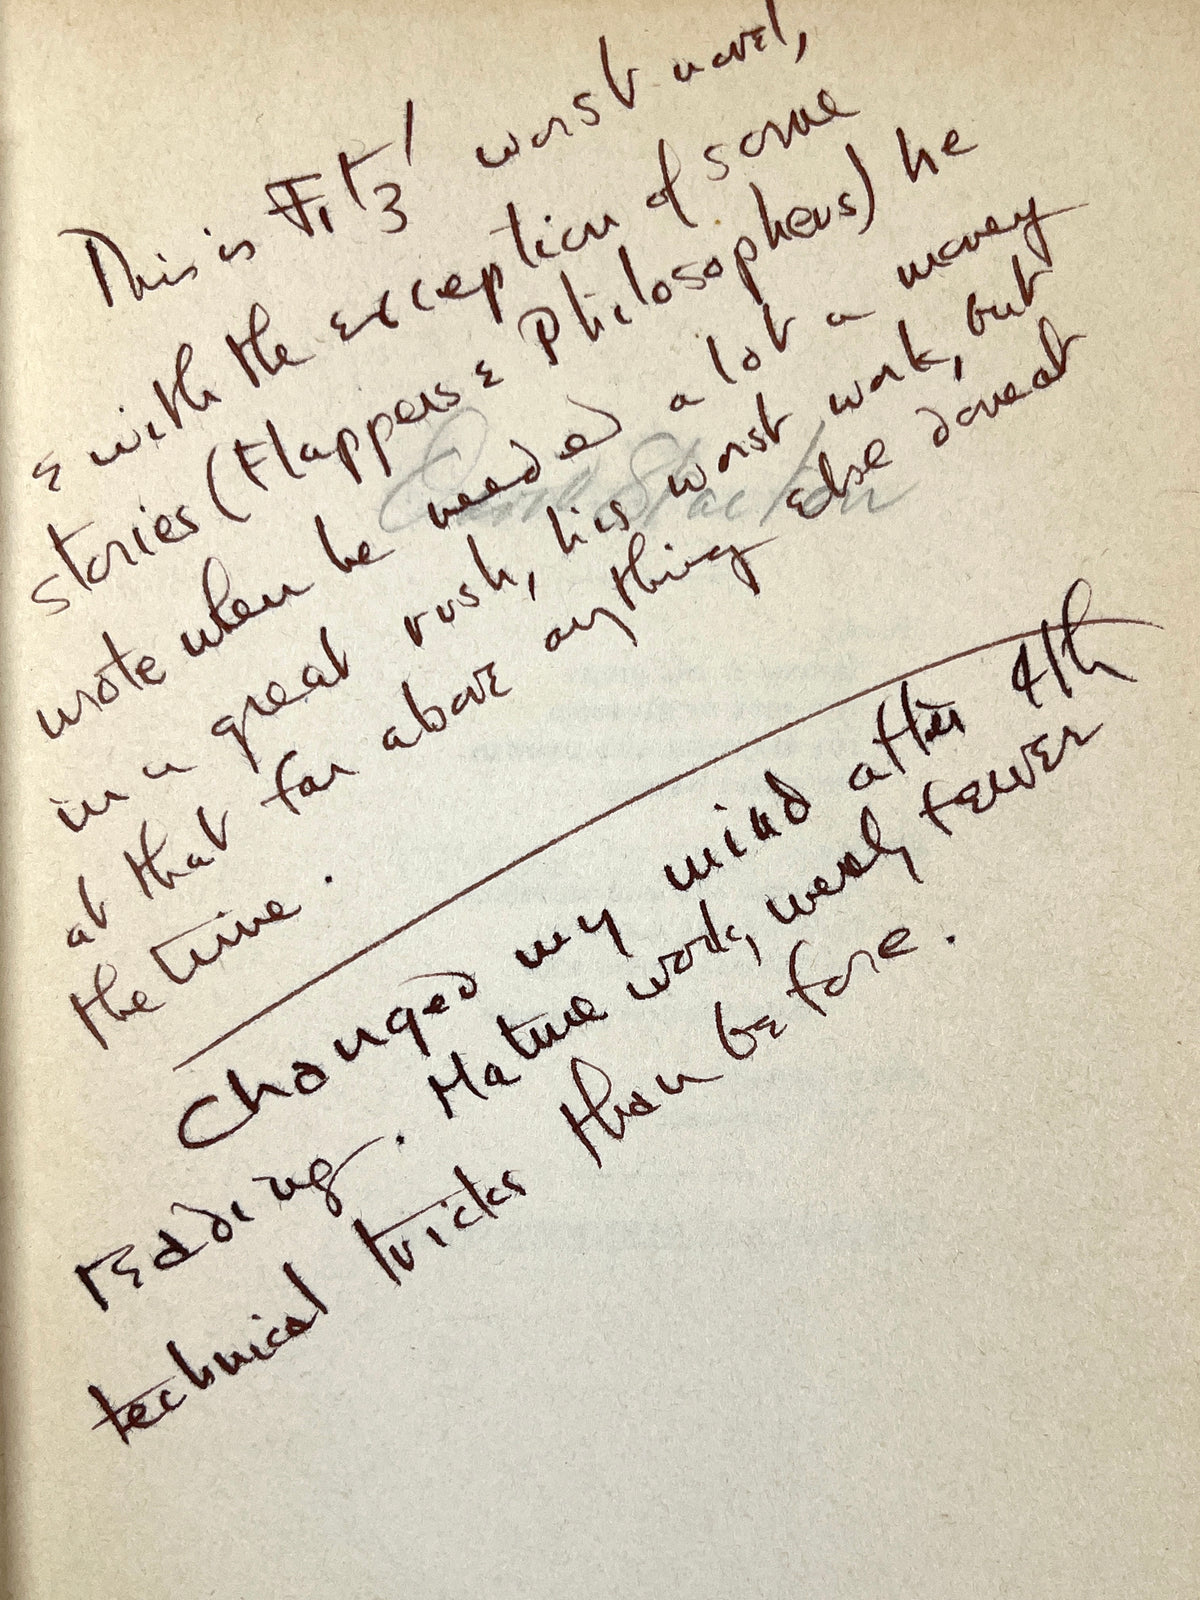 This is Fitz' worst novel,
& with the exception of some
stories (Flappers & Philosophers) he
wrote when he needed a lot a money
in a great rush, his worst work, but
at that far above anything else done at
the time.
Changed my mind after 4th
reading. Mature work, fewer
technical tricks than before.